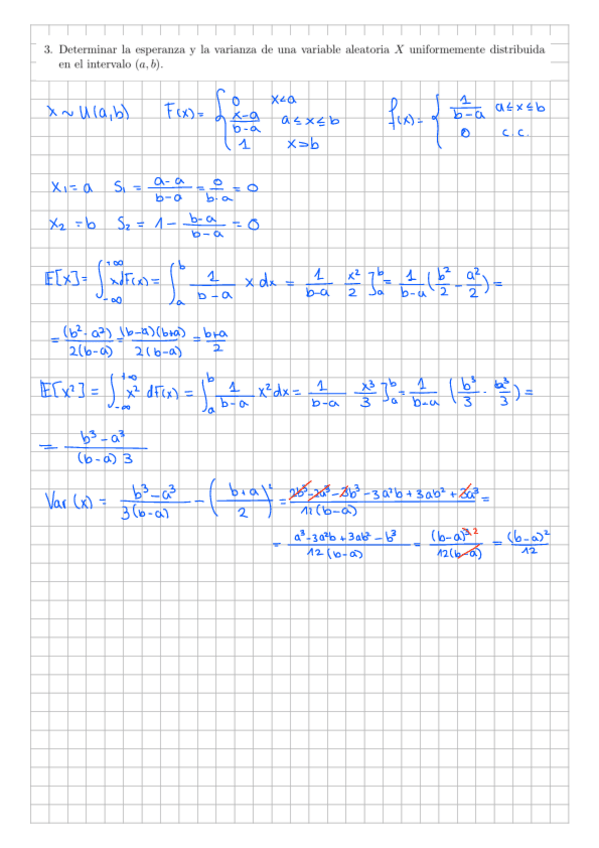 3. Determinar la esperanza y la varianza de una variable aleatoria X uniformemente distribuida
en el intervalo (a, b).
X ~ U(a,b) F(x) = { 0 x<a ; x-a/b-a a≤x≤b ; 1 x>b f(x) = { 1/b-a a≤x≤b ; 0 c.c.
x₁ = a S₁ = a-a/b-a = 0/b-a = 0
x₂ = b S₂ = 1 - b-a/b-a = 0
E[x] = ∫_{-∞}^{+∞} x dF(x) = ∫_a^b 1/b-a x dx = 1/b-a x²/2 ]_a^b = 1/b-a (b²/2 - a²/2) =
= (b²-a²)/2(b-a) = (b-a)(b+a)/2(b-a) = b+a/2
E[x²] = ∫_{-∞}^{+∞} x² dF(x) = ∫_a^b 1/b-a x² dx = 1/b-a x³/3 ]_a^b = 1/b-a (b³/3 - a³/3) =
= b³-a³/(b-a)3
Var(x) = b³-a³/3(b-a) - (b+a/2)² = 2b³-2a³-3b³-3a²b+3ab²+3a³/12(b-a) =
= a³-3a²b+3ab²-b³/12(b-a) = (b-a)³ ²/12(b-a) = (b-a)²/12